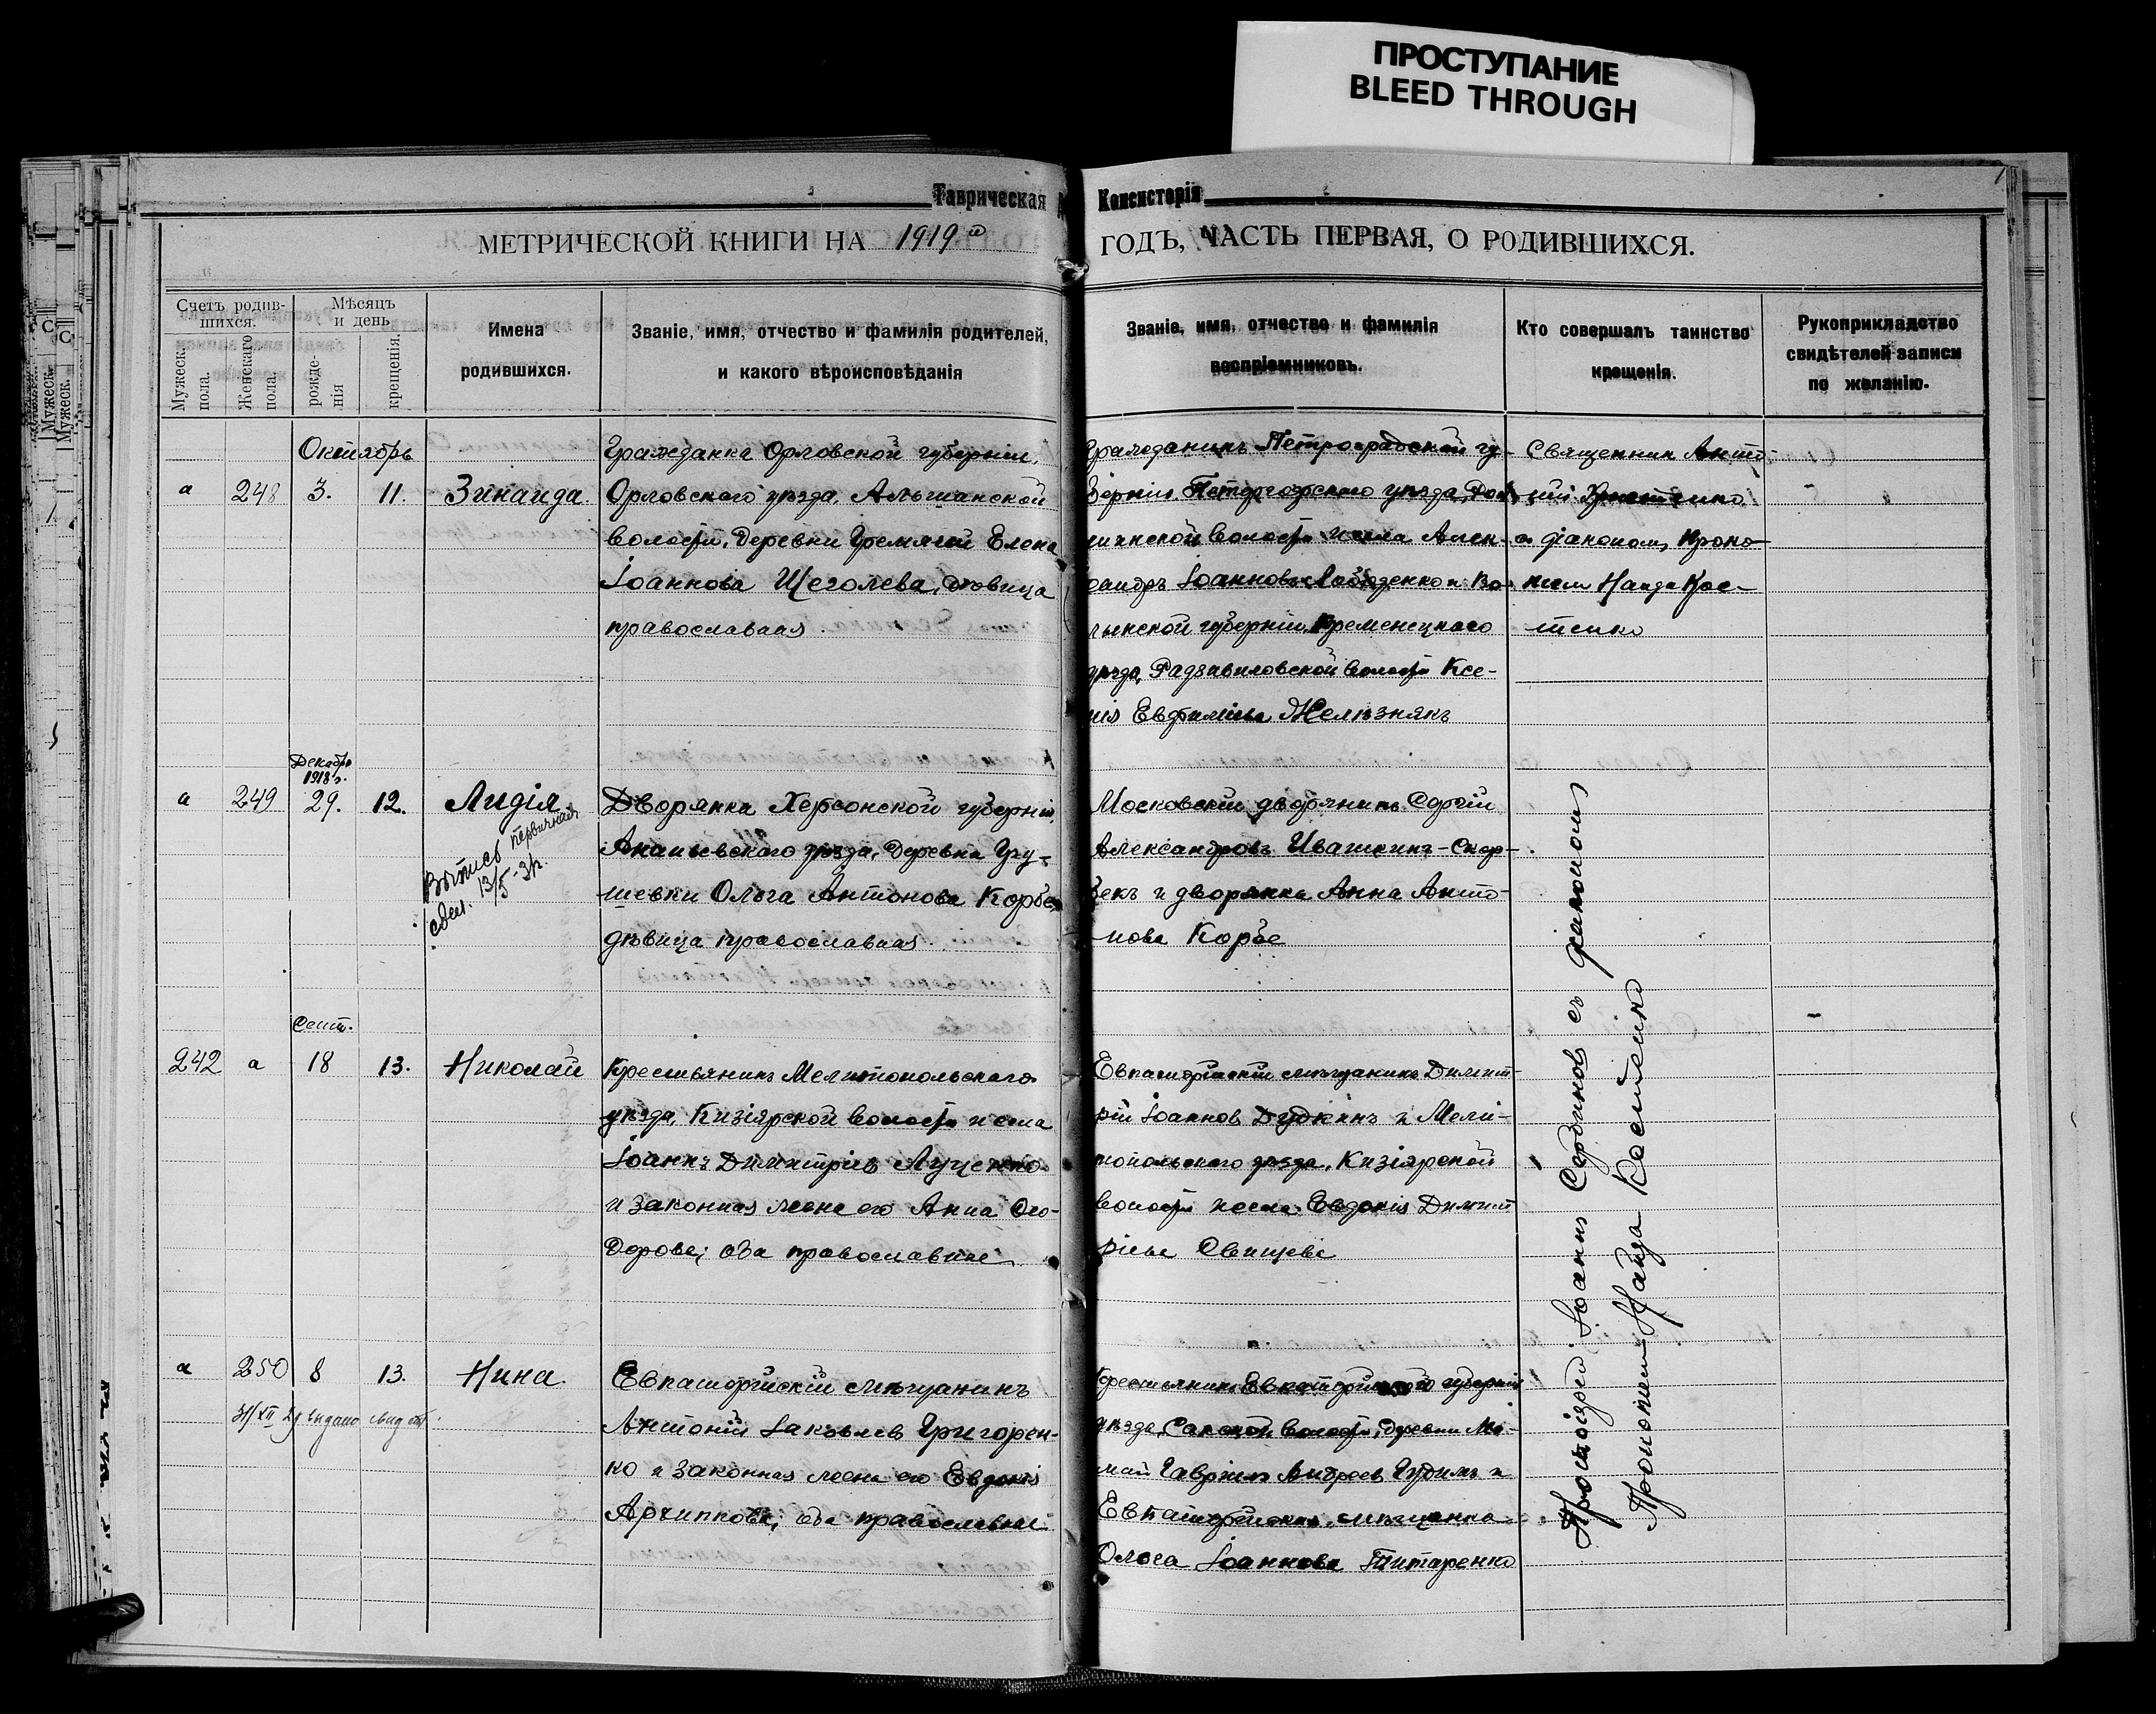 ПРОСТУПАНИЕ
BLEED THROUGH
Таврическая
Консисторія
МЕТРИЧЕСКОЙ КНИГИ НА 1919
ГОДЪ, ЧАСТЬ ПЕРВАЯ, О РОДИВШИХСЯ.
Счетъ родив-
шихся.
Мужеск.
пола.
Женскаго
пола.
Мѣсяцъ
и день
рожде-
нія
крещенія.
Имена
родившихся.
Званіе, имя, отчество и фамилія родителей,
и какого вѣроисповѣданія
Званіе, имя, отчество и фамилія
воспріемниковъ.
Кто совершалъ таинство
крещенія.
Рукоприкладство
свидѣтелей записи
по желанію.
Октябрь
а 248 3. 11. Зинаида.
Гражданка Орловской губерніи,
Орловскаго уѣзда, Альшанской
волости, деревни Гремячей Елена
Іоаннова Щеголева, дѣвица
православная.
Гражданинъ Петроградской гу-
берніи Петергофскаго уѣзда,
волости Алек-
сандръ Іоанновъ и Во-
лынской губерніи, Кременецкаго
уѣзда, Радзивиловской волости Ксе-
нія Евфиміева Желѣзнякъ
Священник Анто-
ній
с діаконом Проко-
піем Найда Кос-
тенко
Декабрь
1918 г.
а 249 29. 12. Лидія.
Выпись первичная
13/5-
Дворянка Херсонской губерніи,
Ананьевскаго уѣзда, деревни Гру-
шевки Ольга Антонова Корбе,
дѣвица православная.
Московскій дворянинъ Сергій
Александровъ Ивашкинъ-
и дворянка Анна Анто-
нова Корбе
Сент.
242 а 18 13. Николай
Крестьянинъ Мелитопольскаго
уѣзда, Кизіярской волости и села
Іоаннъ Димитріев Луценко
и законная жена его Анна Ѳео-
дорова; оба православные
Евпаторійскій мѣщанинъ Димит-
рій Іоаннов Дудкинъ и Мели-
топольскаго уѣзда, Кизіярской
волости и села Евдокія Димит-
ріева Свищева
а 250 8 13. Нина.
31/XII 29 выдано
Евпаторійскій мѣщанинъ
Антоній Іаковлев Григорен-
ко и законная жена его Евдокія
Архиппова; оба православные
Крестьянинъ
уѣзда, Сакской волости, деревни
Гавріилъ Андреев и
Евпаторійская мѣщанка
Ольга Іоаннова Титаренко
Протоіерей Іоаннъ Сербинов съ діаконом
Прокопіем Найда Костенко